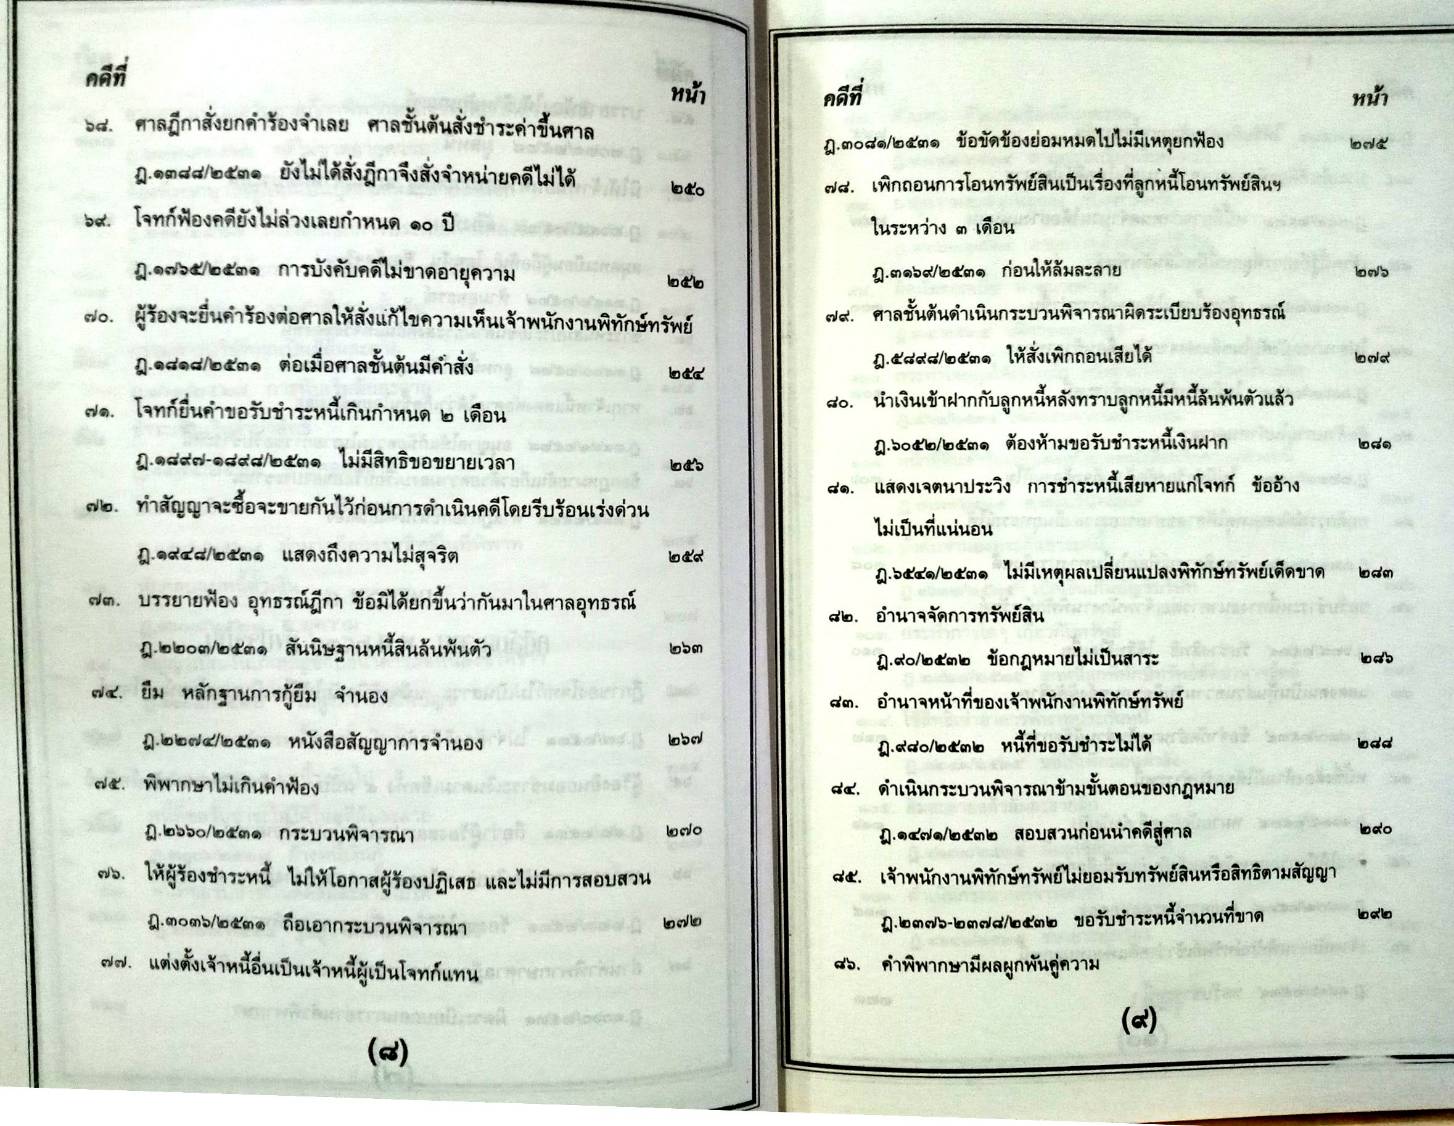 คดีที่
หน้า
๖๘. ศาลฎีกาสั่งยกคำร้องจำเลย ศาลชั้นต้นสั่งชำระค่าขึ้นศาล
ฎ.๑๓๘๘/๒๕๓๑ ยังไม่ได้สั่งฎีกาจึงสั่งจำหน่ายคดีไม่ได้ ๒๕๐
๖๙. โจทก์ฟ้องคดียังไม่ล่วงเลยกำหนด ๑๐ ปี
ฎ.๑๗๖๕/๒๕๓๑ การบังคับคดีไม่ขาดอายุความ ๒๕๒
๗๐. ผู้ร้องจะยื่นคำร้องต่อศาลให้สั่งแก้ไขความเห็นเจ้าพนักงานพิทักษ์ทรัพย์
ฎ.๑๘๑๘/๒๕๓๑ ต่อเมื่อศาลชั้นต้นมีคำสั่ง ๒๕๔
๗๑. โจทก์ยื่นคำขอรับชำระหนี้เกินกำหนด ๒ เดือน
ฎ.๑๘๙๗-๑๘๙๘/๒๕๓๑ ไม่มีสิทธิขอขยายเวลา ๒๕๖
๗๒. ทำสัญญาจะซื้อจะขายกันไว้ก่อนการดำเนินคดีโดยรีบร้อนเร่งด่วน
ฎ.๑๙๔๘/๒๕๓๑ แสดงถึงความไม่สุจริต ๒๕๙
๗๓. บรรยายฟ้อง อุทธรณ์ฎีกา ข้อมิได้ยกขึ้นว่ากันมาในศาลอุทธรณ์
ฎ.๒๒๐๓/๒๕๓๑ สันนิษฐานหนี้สินล้นพ้นตัว ๒๖๓
๗๔. ยืม หลักฐานการกู้ยืม จำนอง
ฎ.๒๒๗๔/๒๕๓๑ หนังสือสัญญาการจำนอง ๒๖๗
๗๕. พิพากษาไม่เกินคำฟ้อง
ฎ.๒๖๖๐/๒๕๓๑ กระบวนพิจารณา ๒๗๐
๗๖. ให้ผู้ร้องชำระหนี้ ไม่ให้โอกาสผู้ร้องปฏิเสธ และไม่มีการสอบสวน
ฎ.๓๐๓๖/๒๕๓๑ ถือเอากระบวนพิจารณา ๒๗๒
๗๗. แต่งตั้งเจ้าหนี้อื่นเป็นเจ้าหนี้ผู้เป็นโจทก์แทน
(๘)
คดีที่
หน้า
ฎ.๓๐๘๑/๒๕๓๑ ข้อขัดข้องย่อมหมดไปไม่มีเหตุยกฟ้อง ๒๗๕
๗๘. เพิกถอนการโอนทรัพย์สินเป็นเรื่องที่ลูกหนี้โอนทรัพย์สินฯ
ในระหว่าง ๓ เดือน
ฎ.๓๑๖๙/๒๕๓๑ ก่อนให้ล้มละลาย ๒๗๖
๗๙. ศาลชั้นต้นดำเนินกระบวนพิจารณาผิดระเบียบร้องอุทธรณ์
ฎ.๕๘๙๘/๒๕๓๑ ให้สั่งเพิกถอนเสียได้ ๒๗๙
๘๐. นำเงินเข้าฝากกับลูกหนี้หลังทราบลูกหนี้มีหนี้ล้นพ้นตัวแล้ว
ฎ.๖๐๕๒/๒๕๓๑ ต้องห้ามขอรับชำระหนี้เงินฝาก ๒๘๑
๘๑. แสดงเจตนาประวิง การชำระหนี้เสียหายแก่โจทก์ ข้ออ้าง
ไม่เป็นที่แน่นอน
ฎ.๖๕๔๑/๒๕๓๑ ไม่มีเหตุผลเปลี่ยนแปลงพิทักษ์ทรัพย์เด็ดขาด ๒๘๓
๘๒. อำนาจจัดการทรัพย์สิน
ฎ.๙๐/๒๕๓๒ ข้อกฎหมายไม่เป็นสาระ ๒๘๖
๘๓. อำนาจหน้าที่ของเจ้าพนักงานพิทักษ์ทรัพย์
ฎ.๙๘๐/๒๕๓๒ หนี้ที่ขอรับชำระไม่ได้ ๒๘๘
๘๔. ดำเนินกระบวนพิจารณาข้ามขั้นตอนของกฎหมาย
ฎ.๑๔๗๑/๒๕๓๒ สอบสวนก่อนนำคดีสู่ศาล ๒๙๐
๘๕. เจ้าพนักงานพิทักษ์ทรัพย์ไม่ยอมรับทรัพย์สินหรือสิทธิตามสัญญา
ฎ.๒๓๗๖-๒๓๗๘/๒๕๓๒ ขอรับชำระหนี้จำนวนที่ขาด ๒๙๒
๘๖. คำพิพากษามีผลผูกพันคู่ความ
(๙)